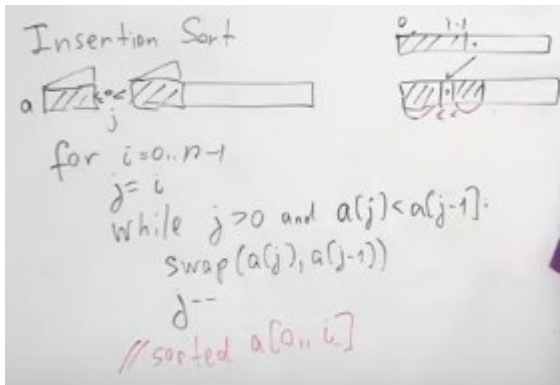 Insertion Sort
0 i-1
a
j
for i=0..n-1
j= i
while j>0 and a[j]<a[j-1]:
swap(a[j],a[j-1])
j--
//sorted a[0..i]